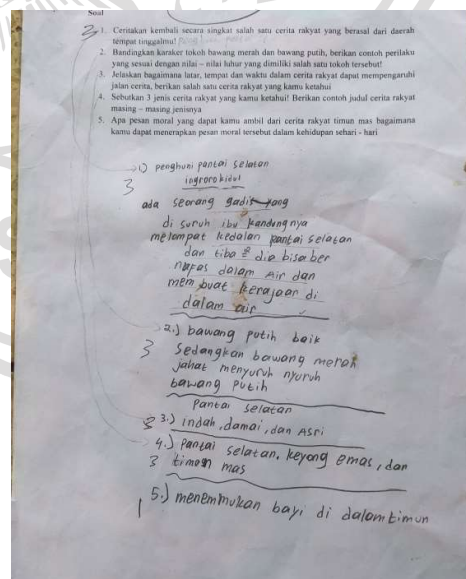 Soal
1. Ceritakan kembali secara singkat salah satu cerita rakyat yang berasal dari daerah
tempat tinggalmu!
2. Bandingkan karaker tokoh bawang merah dan bawang putih, berikan contoh perilaku
yang sesuai dengan nilai – nilai luhur yang dimiliki salah satu tokoh tersebut!
3. Jelaskan bagaimana latar, tempat dan waktu dalam cerita rakyat dapat mempengaruhi
jalan cerita, berikan salah satu cerita rakyat yang kamu ketahui
4. Sebutkan 3 jenis cerita rakyat yang kamu ketahui! Berikan contoh judul cerita rakyat
masing – masing jenisnya
5. Apa pesan moral yang dapat kamu ambil dari cerita rakyat timun mas bagaimana
kamu dapat menerapkan pesan moral tersebut dalam kehidupan sehari - hari
1) penghuni pantai selatan
3
ingrorokidul
ada seorang gadis yang
di suruh ibu kandungnya
melompat kedalan pantai selatan
dan tiba2 dia bisa ber
napas dalam Air dan
mem buat kerajaan di
dalam air
2.) bawang putih baik
3 Sedangkan bawang merah
jahat menyuruh nyuruh
bawang putih
Pantai selatan
3.) indah, damai, dan Asri
4.) Pantai selatan, keyong emas, dan
3 timun mas
1 5.) menemmukan bayi di dalam timun